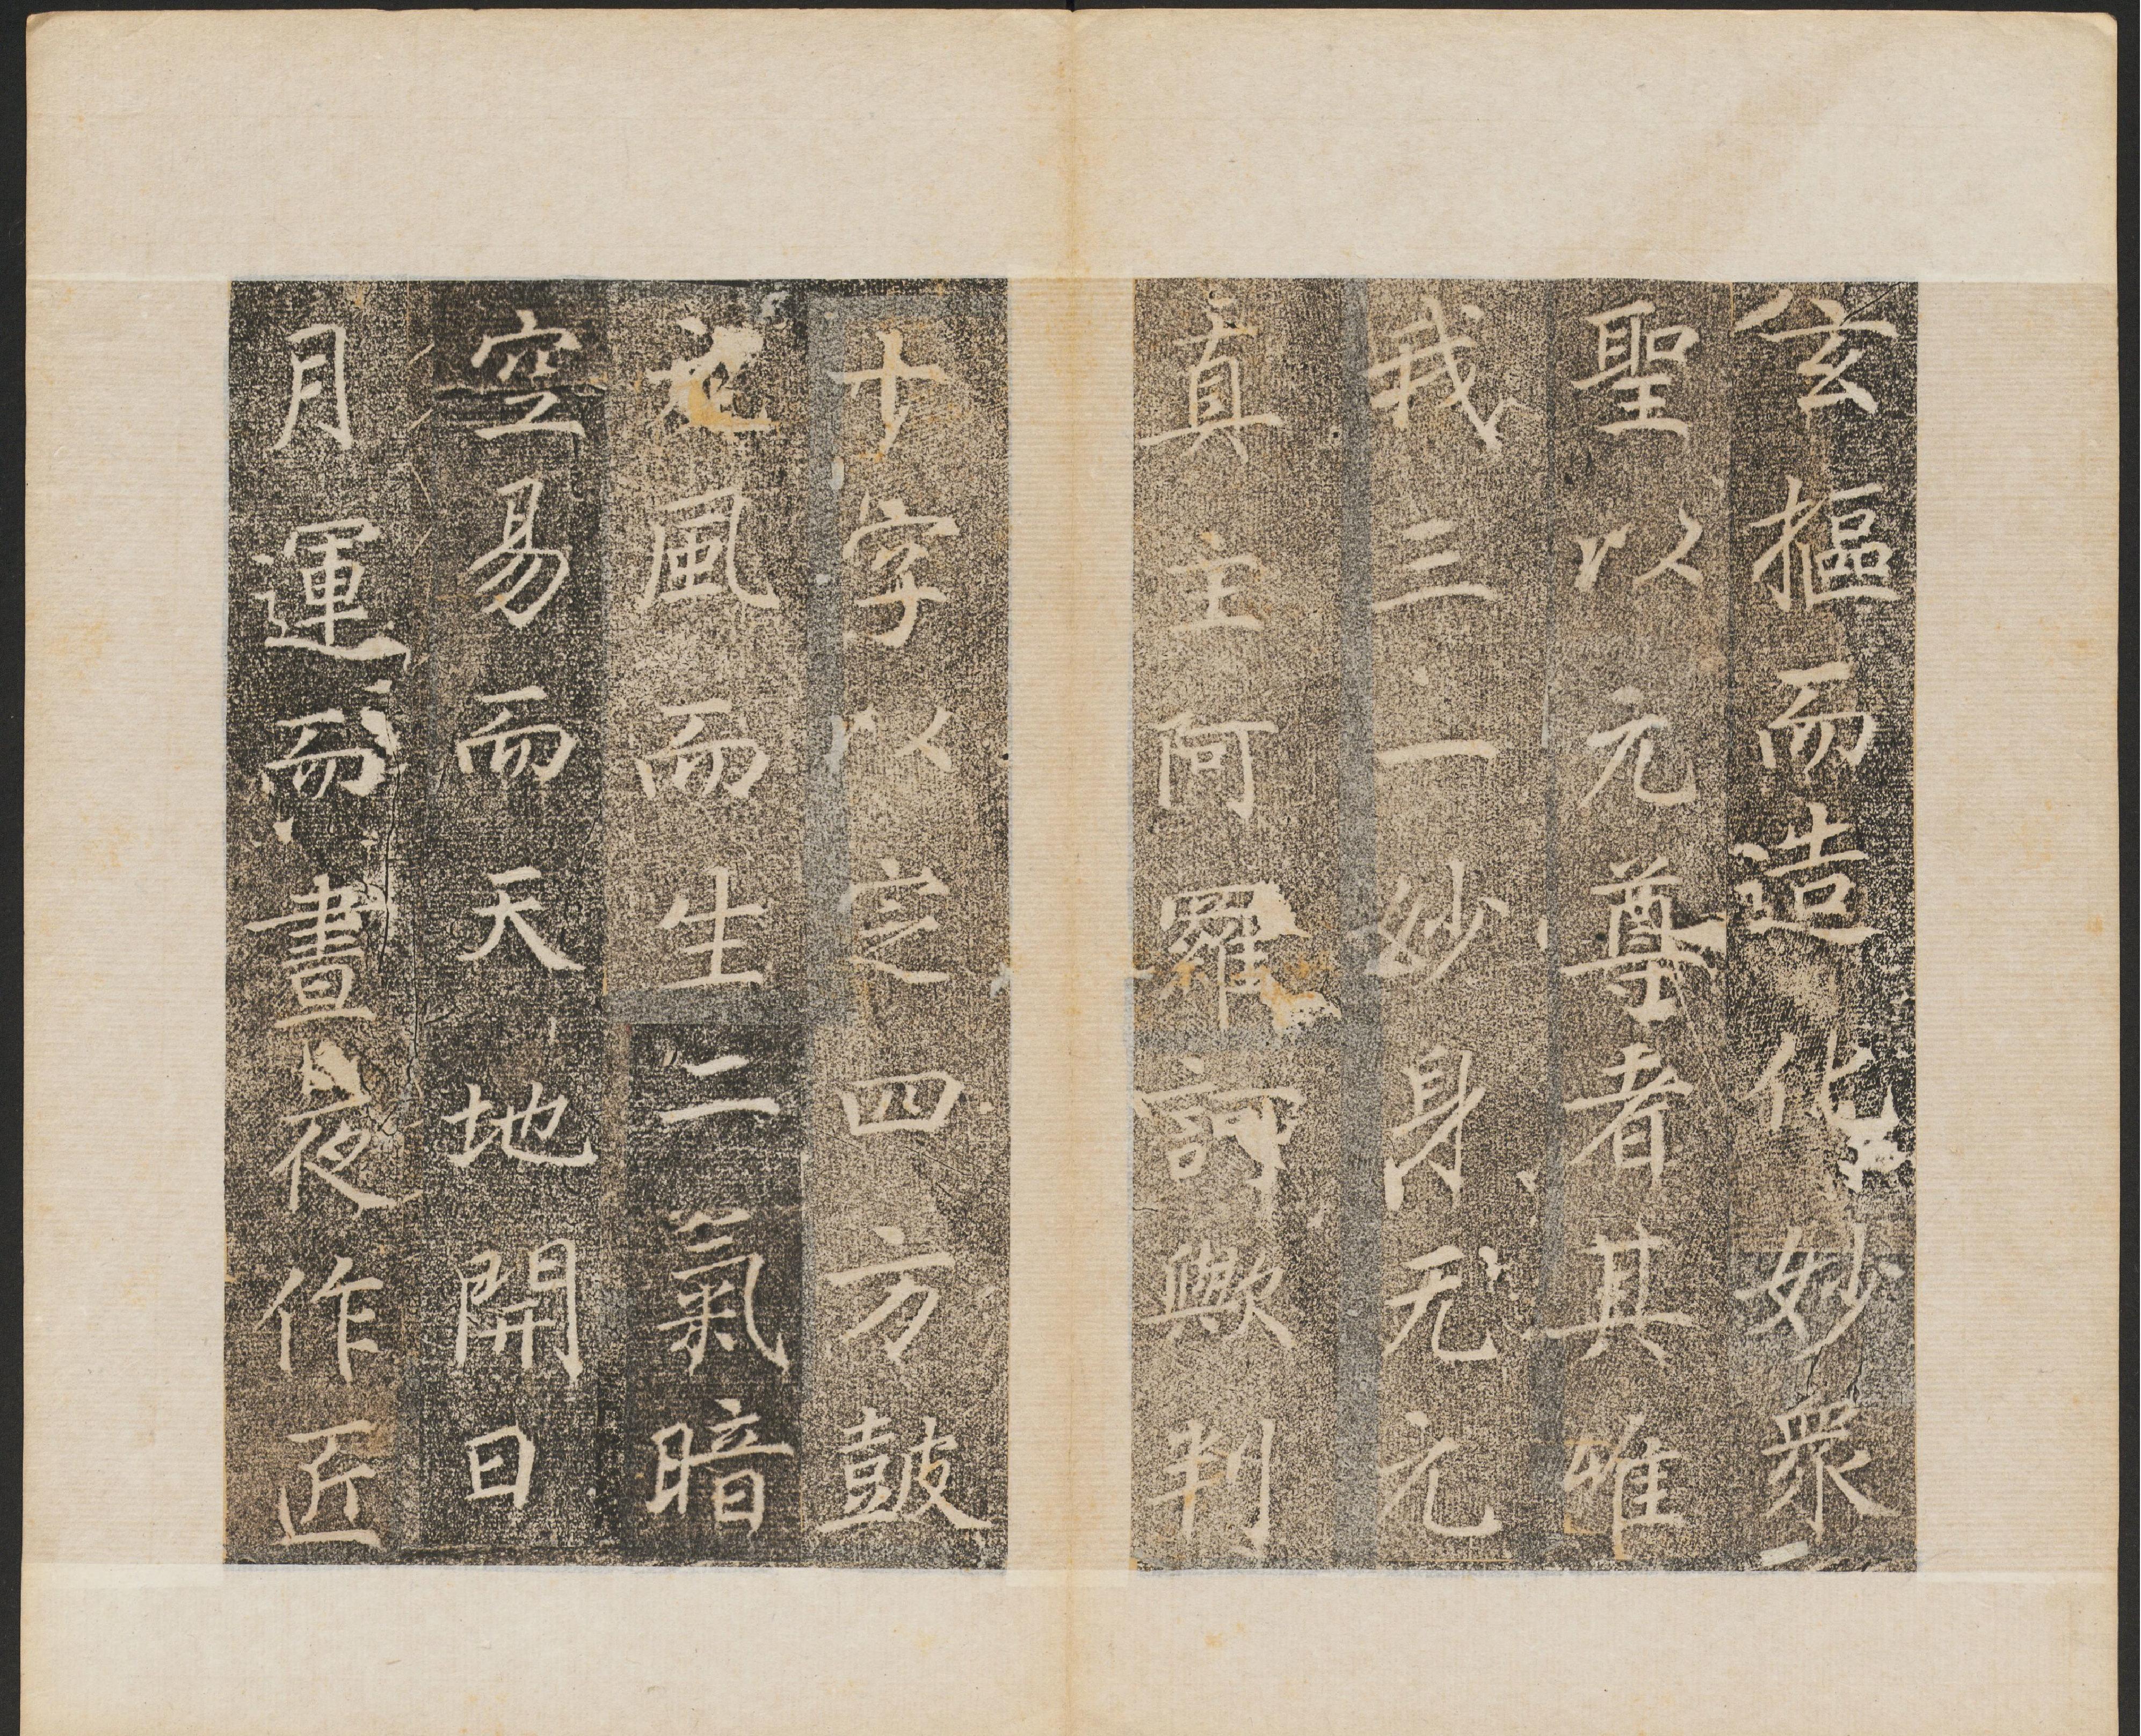 玄摳而造化妙衆
聖以元尊者其唯
我三一妙身无元
真主阿羅訶歟判
十字以定四方鼓
元風而生二氣暗
空易而天地開日
月運而晝夜作匠